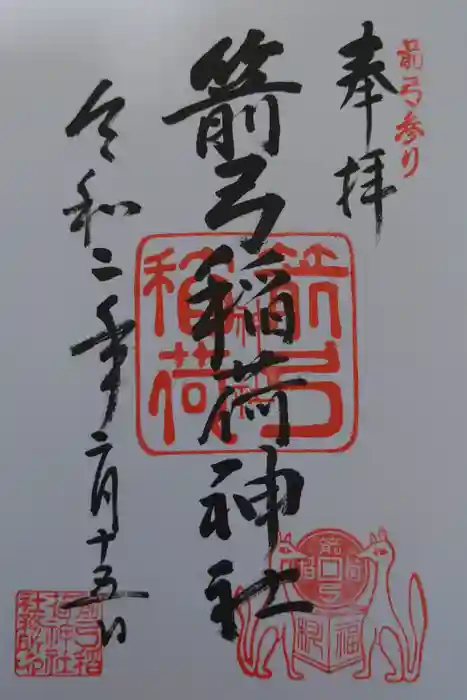 前弓参り
奉拝
箭弓稲荷神社
令和二年二月十五日
箭弓
稲荷
神社
箭弓稲
荷神社
社務所印